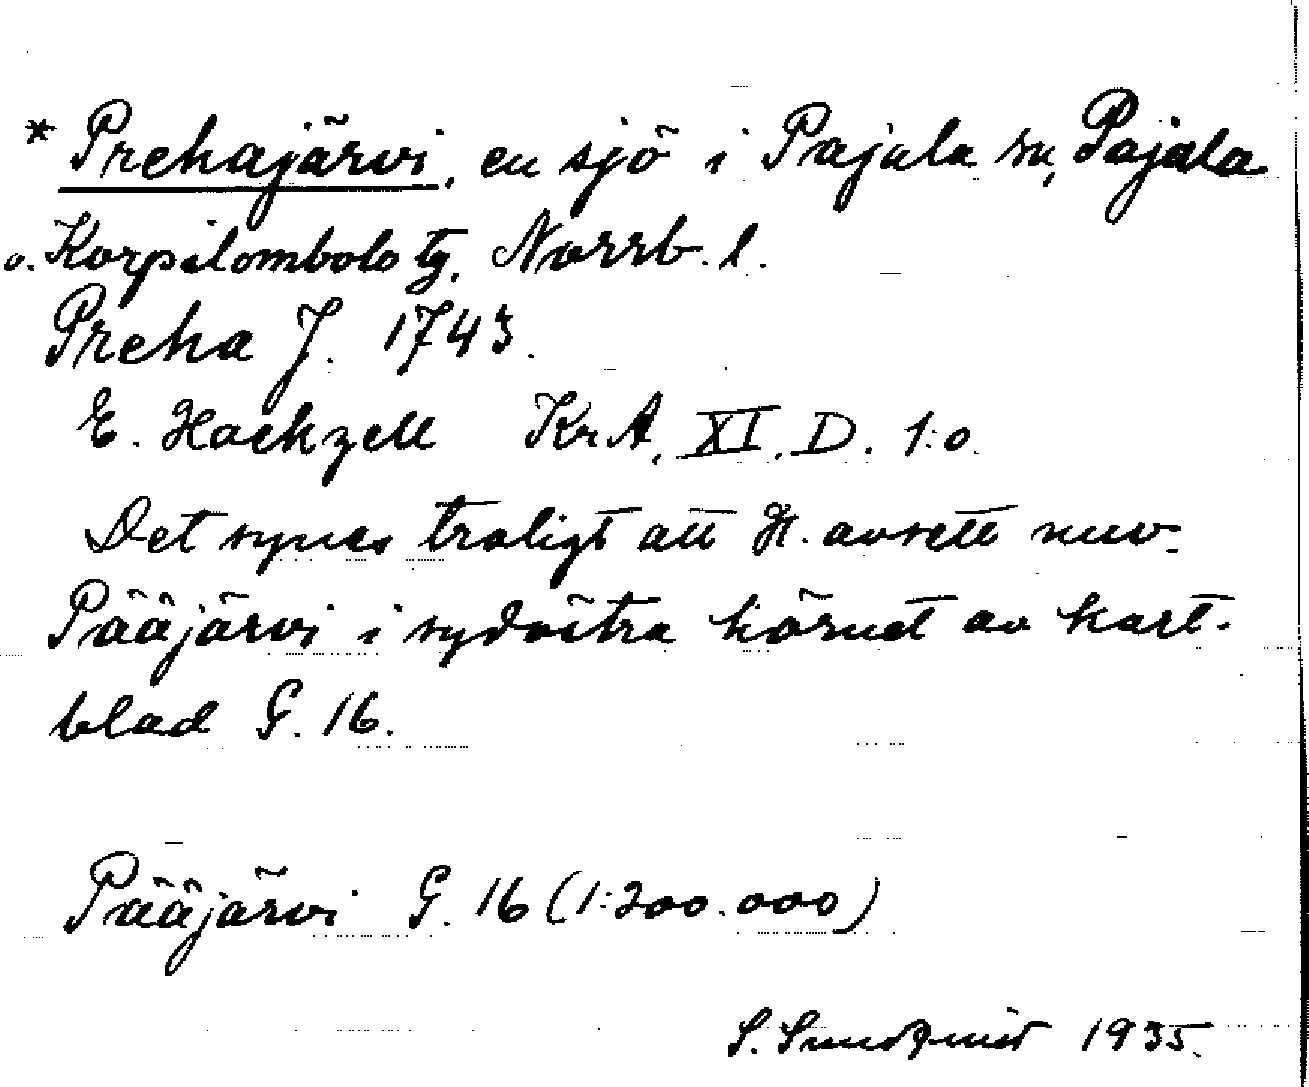 * Prehajärvi, en sjö i Pajala sn, Pajala
o. Korpilombolo tg, Norrb. l.
Preha J. 1743.
E. Hackzell KrA, XI, D. 1:o
Det synes troligt att H. avsett nuv.
Pääjärvi i sydvästra hörnet av kart-
blad G. 16.
Pääjärvi G. 16 (1:200.000)
S. Sundqvist 1935.